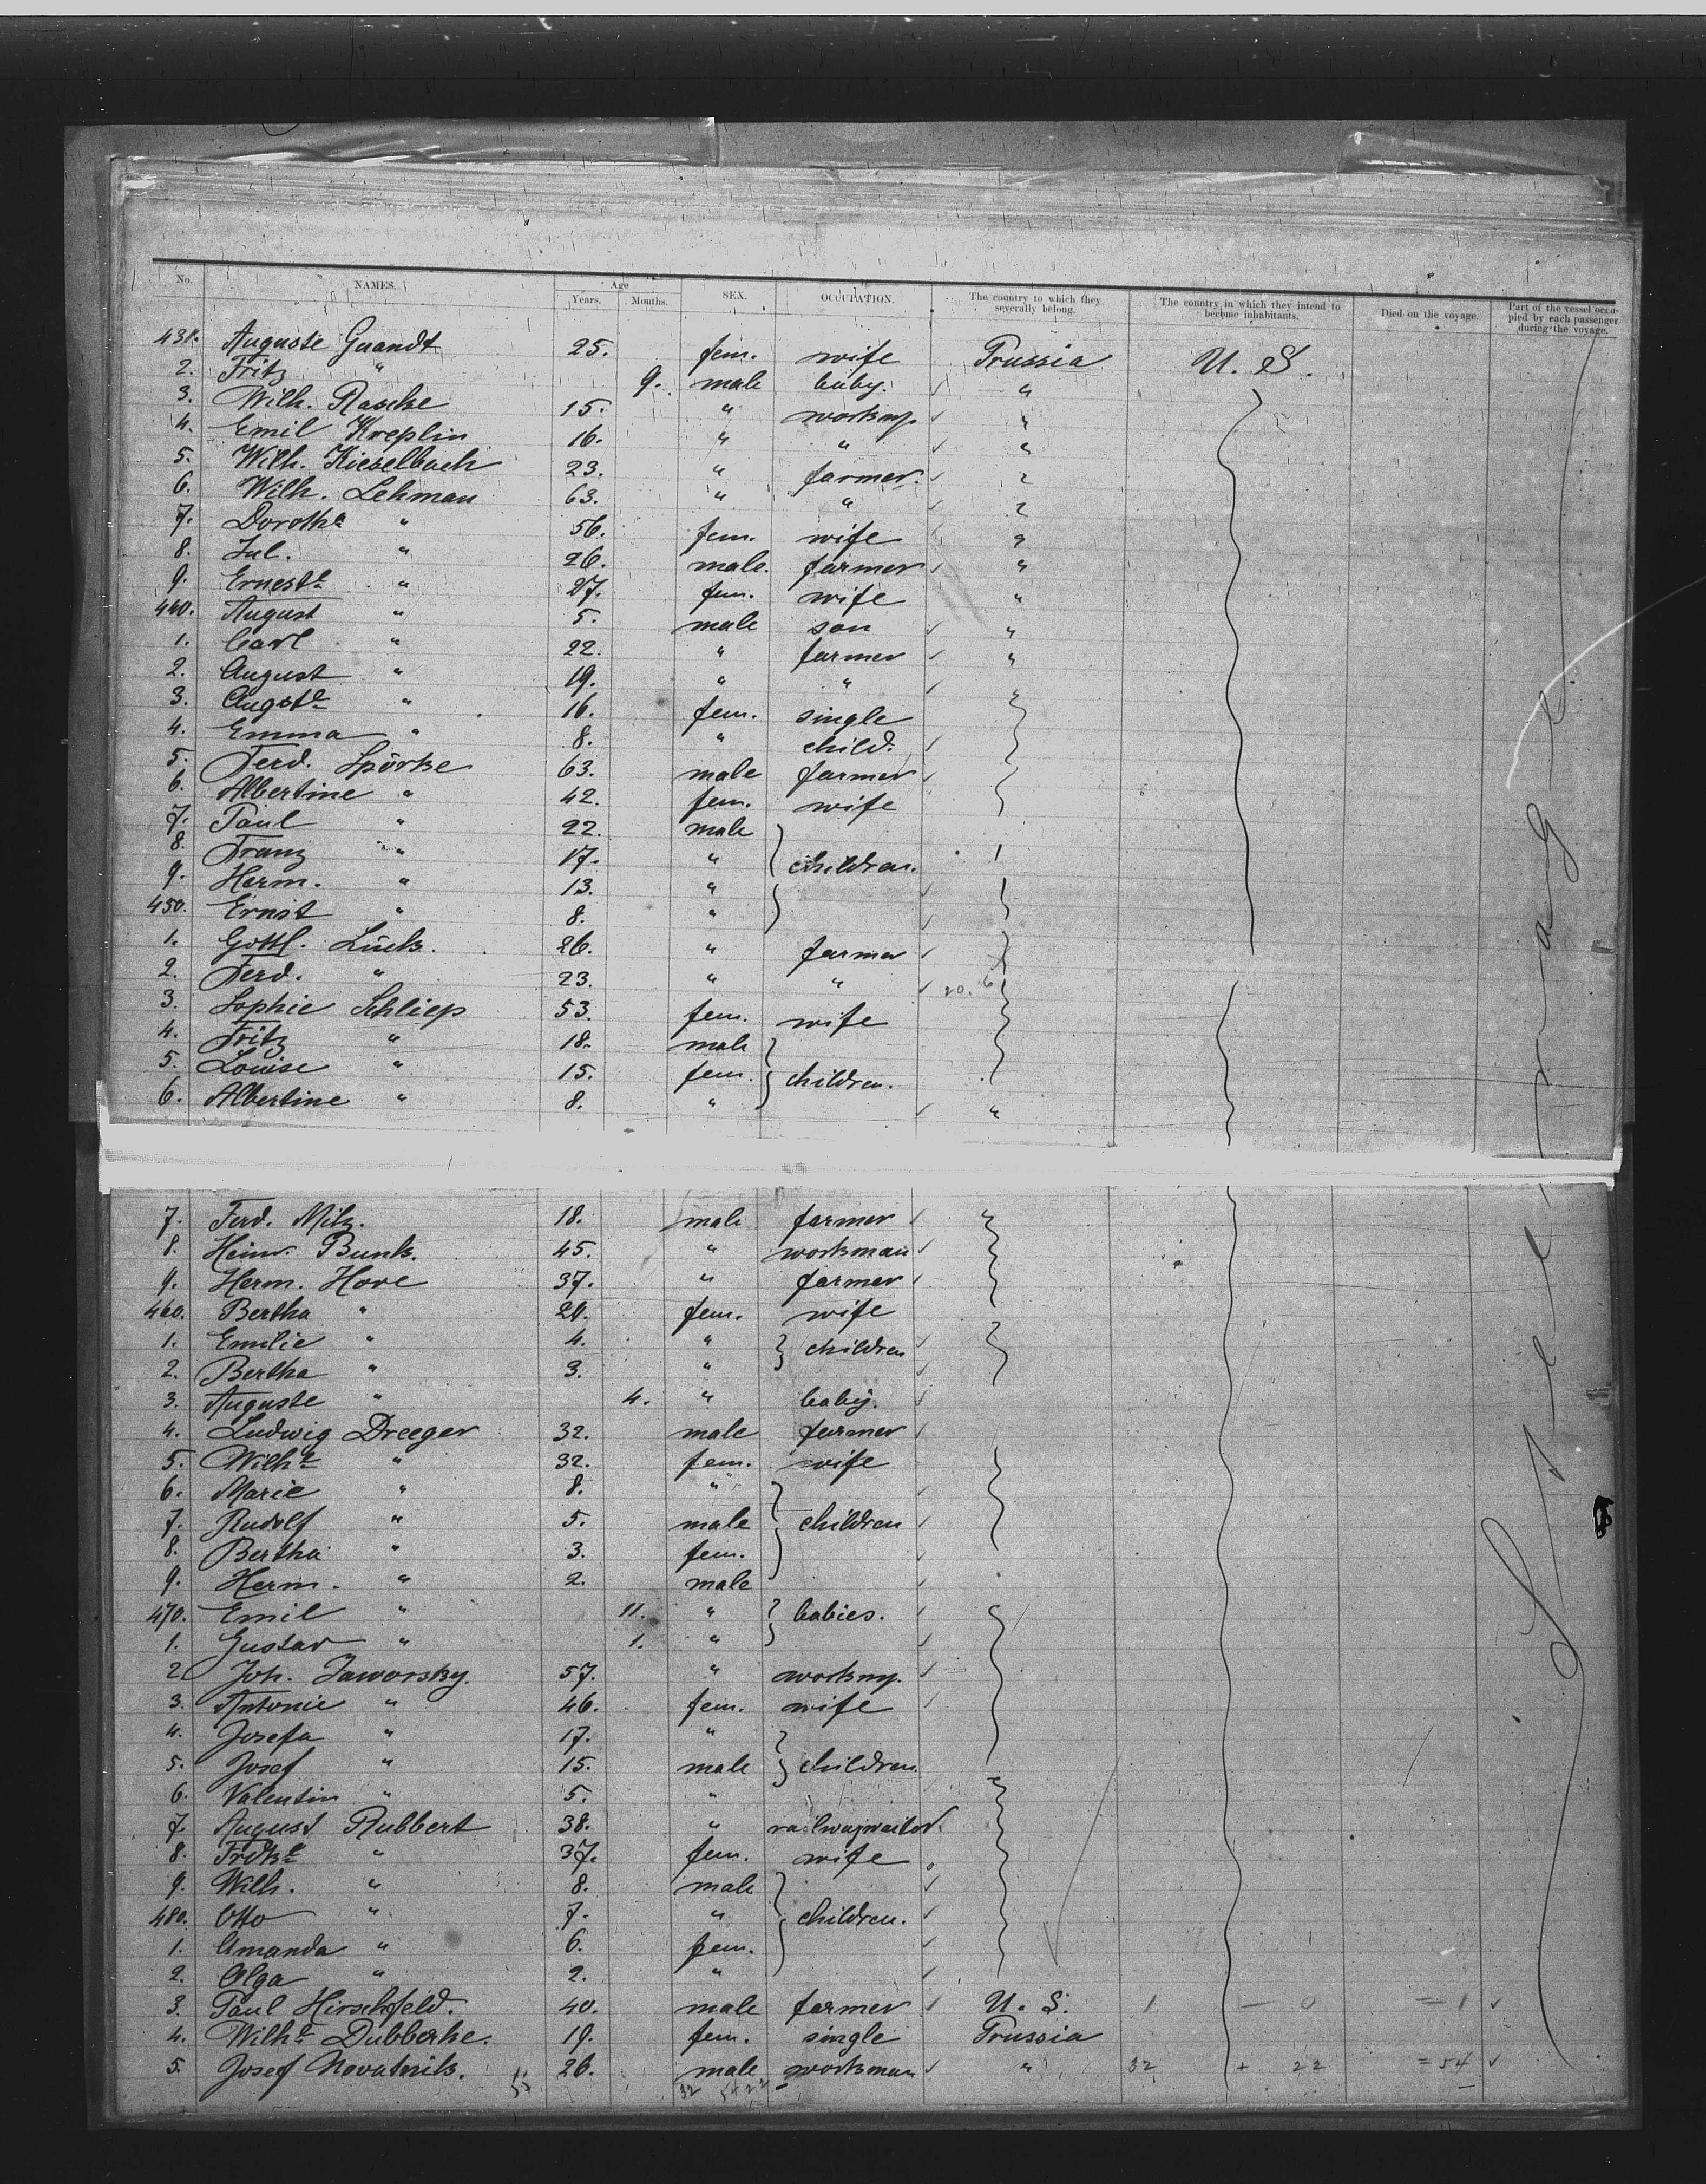 No. NAMES. Age Years. Months. SEX. OCCUPATION. The country to which they severally belong. The country in which they intend to become inhabitants. Died on the voyage. Part of the vessel occupied by each passenger during the voyage.
431. Auguste Guandt 25. fem. wife Prussia U. S.
2. Fritz " 9. male baby. "
3. Wilh. Rascke 15. " workmn. "
4. Emil Kreplin 16. " " "
5. Wilh. Kieselbach 23. " farmer. "
6. Wilh. Lehman 63. " " "
7. Doroth<sup>e</sup> " 56. fem. wife "
8. Jul. " 26. male. farmer "
9. Ernest<sup>e</sup> " 27. fem. wife "
440. August " 5. male son "
1. Carl " 22. " farmer "
2. August " 19. " " "
3. Augst<sup>e</sup> " 16. fem. single
4. Emma " 8. " child.
5. Ferd. Spörke 63. male farmer
6. Albertine " 42. fem. wife
7. Paul " 22. male
8. Franz " 17. " children.
9. Herm. " 13. "
450. Ernst " 8. "
1. Gottl. Lück. 26. " farmer
2. Ferd. " 23. " " 20. 6
3. Sophie Schliep 53. fem. wife
4. Fritz " 18. male
5. Louise " 15. fem. children.
6. Albertine " 8. " "
7. Ferd. Milz. 18. male farmer "
8. Heinr. Bunk. 45. " workman
9. Herm. Hove 37. " farmer
460. Bertha " 26. fem. wife
1. Emilie " 4. " children
2. Bertha " 3. "
3. Auguste " 4. " baby.
4. Ludwig Dreeger 32. male farmer
5. Wilh<sup>e</sup> " 32. fem. wife
6. Marie " 8. "
7. Rudolf " 5. male children
8. Bertha " 3. fem.
9. Herm. " 2. male
470. Emil " 11. " babies.
1. Gustav " 1. "
2. Joh. Jaworsky. 57. " workmn.
3. Antonie " 46. fem. wife
4. Josefa " 17. "
5. Josef " 15. male children.
6. Valentin " 5. "
7. August Rubbert 38. " railwaywaiter
8. Frdke<sup>e</sup> " 37. fem. wife
9. Wilh. " 8. male
480. Otto " 7. " children.
1. Amanda " 6. fem.
2. Olga " 2. "
3. Paul Hirschfeld. 40. male farmer U. S. 1 — 0 = 1
4. Wilh<sup>e</sup> Dubberke. 19. fem. single Prussia
5. Josef Novatnik. 26. male workman " 32 + 22 = 54
Steerage